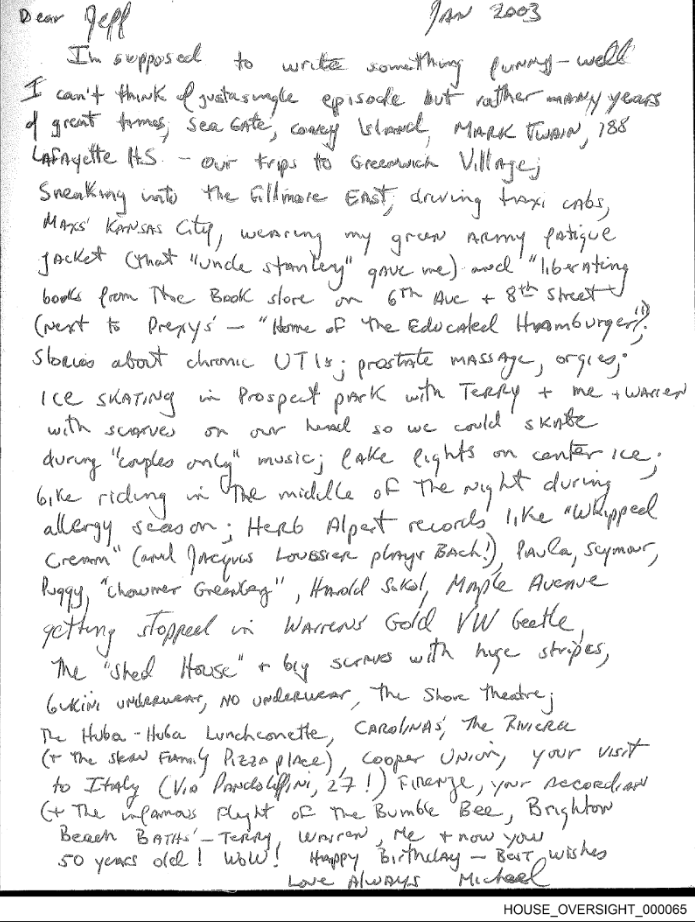 Dear Jeff JAN 2003
I'm supposed to write something funny - well
I can't think of just a single episode but rather many years
of great times, Sea Gate, Coney Island, MARK TWAIN, 188
LaFayette H.S. - our trips to Greenwich Village;
Sneaking into the Fillmore EAST, driving taxi cabs,
MAXS' KANSAS City, wearing my green Army fatigue
jacket (that "uncle stanley" gave me) and "liberating"
books from The Book store on 6th Ave + 8th Street
(next to Prexys' - "Home of The Educated Hamburger");
Stories about chronic UTIs; prostate massage, orgies;
ICE SKATING in Prospect park with TERRY + me + WARREN
with scarves on our head so we could skate
during "couples only" music; fake fights on center ice;
bike riding in The middle of The night during
allergy season; Herb Alpert records like "Whipped
Cream" (and Jacques Loussier plays BACH!), Paula, Seymour,
Puggy, "Greenberg", Harold Sokol, Maple Avenue
getting stopped in WARRENS' Gold VW beetle,
The "Shed House" + big scarves with huge stripes,
bikini underwear, NO underwear, The Shore Theatre;
The Huba-Huba Lunchonette, CAROLINAS', The RIVIERA
(+ The Family Pizza place), Cooper Union, your visit
to Italy (Via Pandolfini, 27!) Firenze, your accordian
(+ The infamous Flight of The Bumble Bee, Brighton
Beach BATHS' - TERRY, Warren, Me + now you
50 years old! WOW! Happy Birthday - Best wishes
Love Always Michael
HOUSE_OVERSIGHT_000065